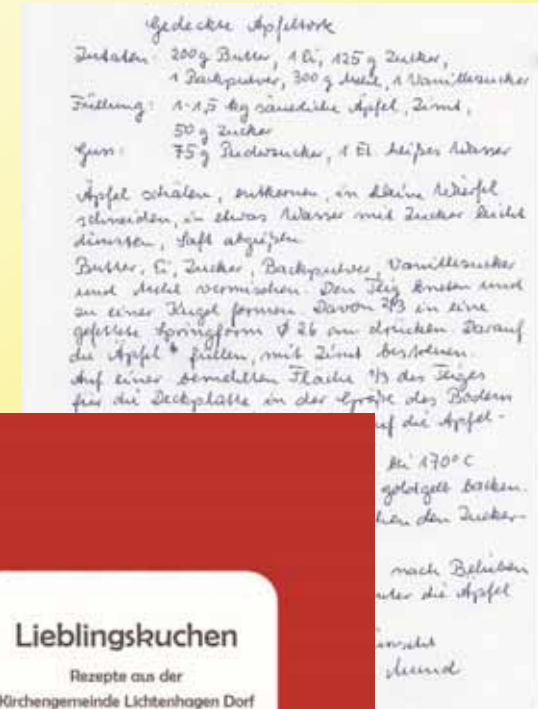 Gedeckte Apfeltorte
Zutaten: 200 g Butter, 1 Ei, 125 g Zucker,
1 Backpulver, 300 g Mehl, 1 Vanillezucker
Füllung: 1-1,5 kg säuerliche Äpfel, Zimt,
50 g Zucker
Guss: 75 g Puderzucker, 1 El. heißes Wasser
Äpfel schälen, entkernen, in kleine Würfel
schneiden, in etwas Wasser mit Zucker leicht
dünsten, Saft abgießen
Butter, Ei, Zucker, Backpulver, Vanillezucker
und Mehl vermischen. Den Teig kneten und
zu einer Kugel formen. Davon 2/3 in eine
gefettete Springform Ø 26 cm drücken. Darauf
die Äpfel * füllen, mit Zimt bestreuen.
Auf einer bemehlten Fläche 1/3 des Teiges
für die Deckplatte in der Größe des Bodens
auf die Apfel-
bei 170° C
goldgelb backen.
den Zucker-
nach Belieben
unter die Äpfel
Lieblingskuchen
Rezepte aus der
Kirchengemeinde Lichtenhagen Dorf